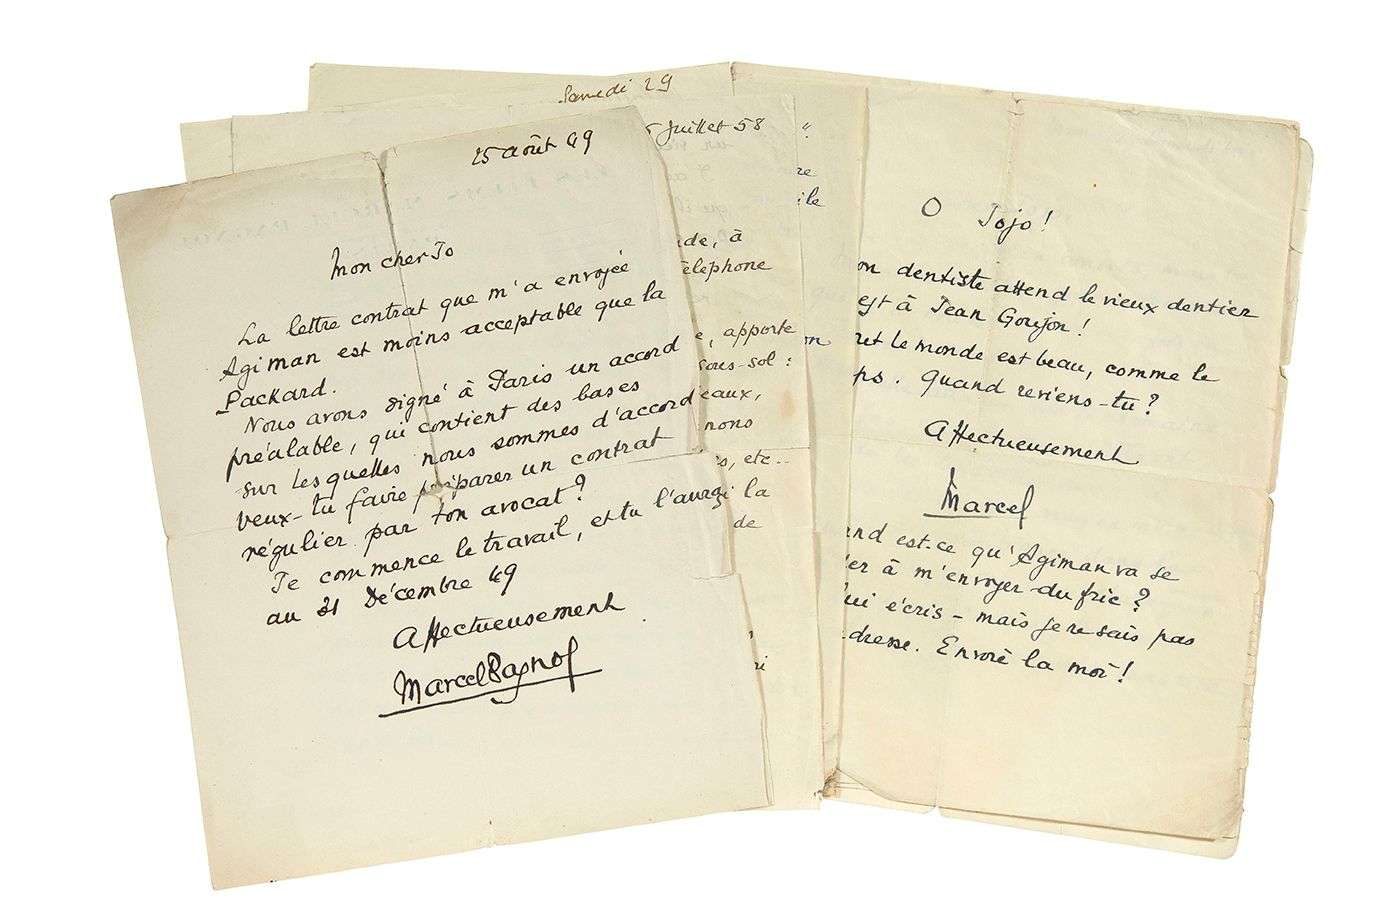 25 août 49
Mon cher Jo
La lettre contrat que m'a envoyée
Agiman est moins acceptable que la
Packard.
Nous avons signé à Paris un accord
préalable, qui contient des bases
sur lesquelles nous sommes d'accord
veux-tu faire préparer un contrat
régulier par ton avocat?
Je commence le travail, et tu l'auras la
au 31 Décembre 49
Affectueusement
Marcel Pagnol
Samedi 29
5 Juillet 58
re
ile
de, à
éléphone
e, apporte
sous-sol:
eaux,
nons
s, etc..
de
on
O Jojo!
on dentiste attend le vieux dentier
est à Jean Goujon!
ret le monde est beau, comme le
ps. Quand reviens-tu?
Affectueusement
Marcel
and est-ce qu'Agiman va se
er à m'envoyer du fric?
lui écris - mais je ne sais pas
dresse. Envoie la moi!